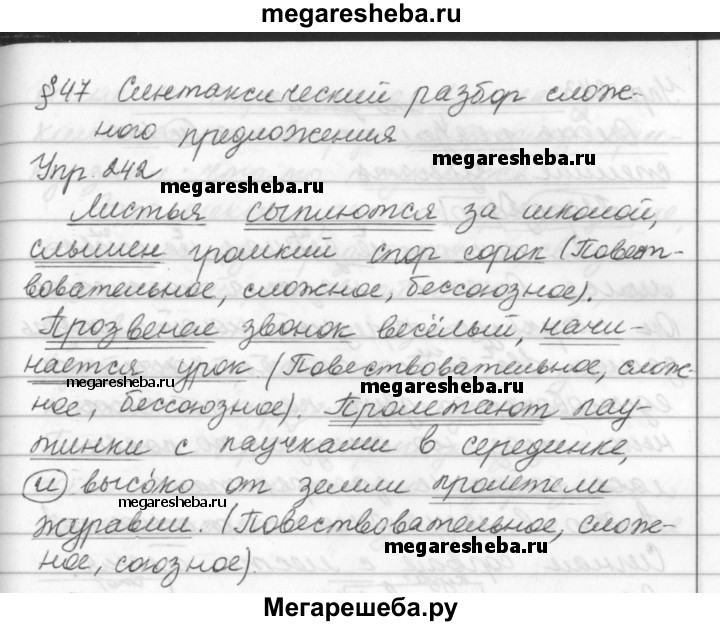 megaresheba.ru
§47 Синтаксический разбор слож-
ного предложения
megaresheba.ru
Упр. 242
megaresheba.ru
Листья сыплются за школой,
слышен громкий спор сорок (Повест-
вовательное, сложное, бессоюзное).
Прозвенел звонок весёлый, начи-
нается урок (Повествовательное, слож-
megaresheba.ru
megaresheba.ru
ное, бессоюзное). Пролетают пау-
тинки с паучками в серединке,
и высоко от земли пролетели
megaresheba.ru
журавли. (Повествовательное, слож-
megaresheba.ru
ное, союзное).
Мегарешеба.ру